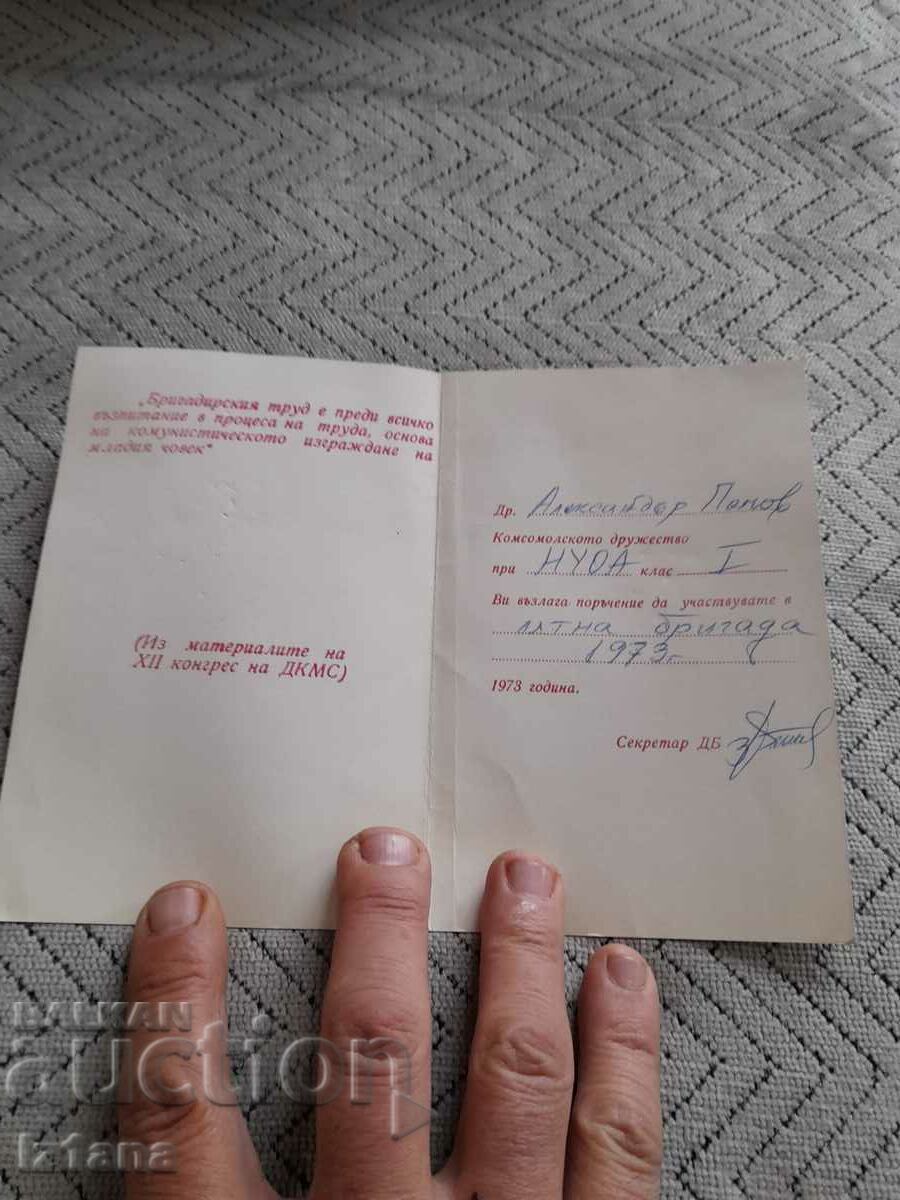 „Бригадирския труд е преди всичко
възпитание в процеса на труда, основа
на комунистическото изграждане на
младия човек“
(Из материалите на
XII конгрес на ДКМС)
Др. Александър Попов
Комсомолското дружество
при НУОА клас I
Ви възлага поръчение да участвувате в
лятна бригада
1973 г.
1973 година.
Секретар ДБ
BALKAN
auction
iz1ana